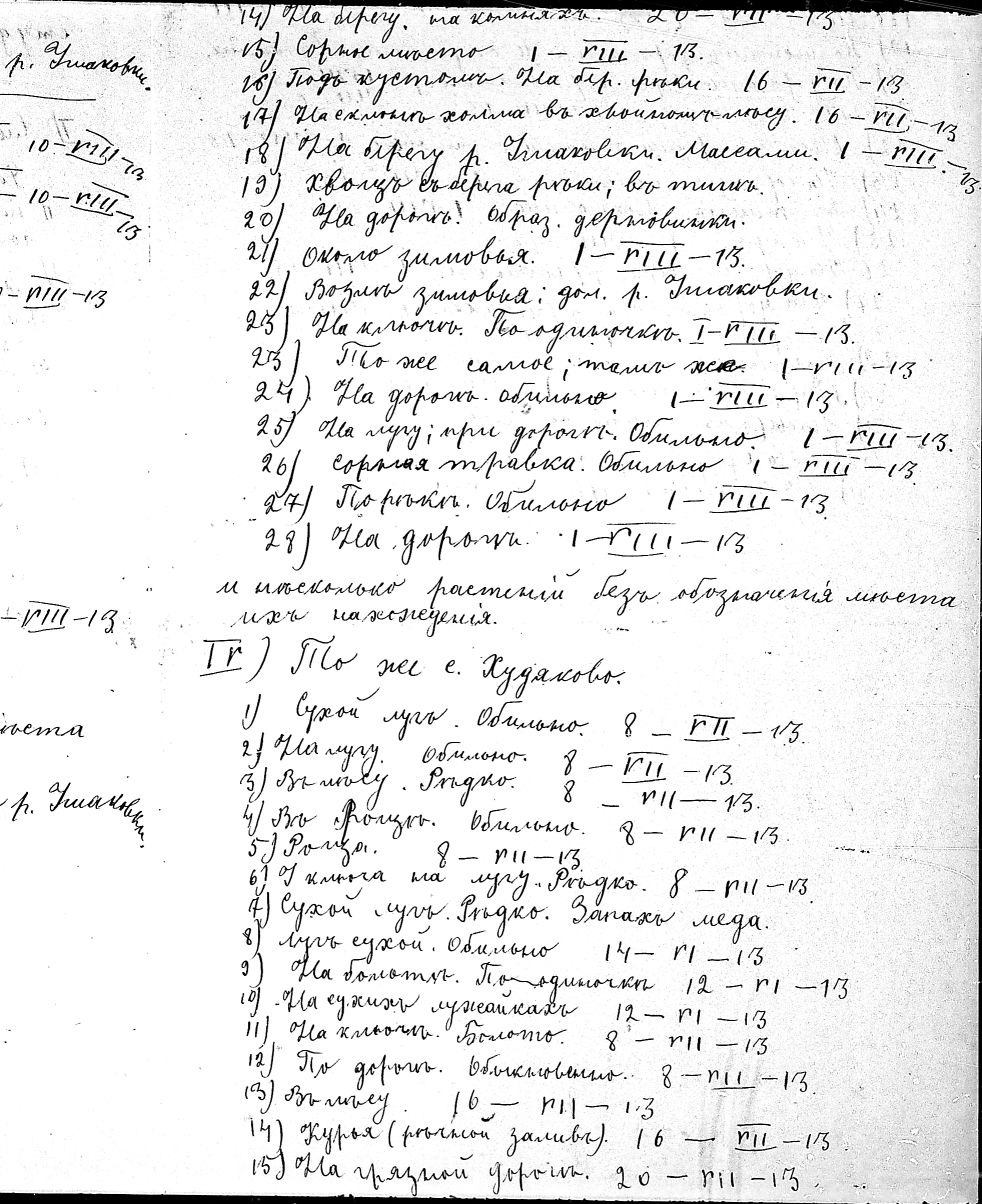 р. Ушаковки.
10 – VIII – 13
10 – VIII – 13
– VIII – 13
– VIII – 13
мѣста
р. Ушаковки.
14) На берегу, на камняхъ. 20 – VII – 13
15) Сорное мѣсто 1 – VIII – 13.
16) Подъ кустомъ. На бер. рѣки. 16 – VII – 13
17) На склонѣ холма въ хвойномъ лѣсу. 16 – VII – 13
18) На берегу р. Ушаковки. Массами. 1 – VIII – 13
19) Хвощъ съ берега рѣки; въ тинѣ.
20) На дорогѣ. Образ. дерновинки.
21) Около зимовья. 1 – VIII – 13.
22) Возлѣ зимовья; дол. р. Ушаковки.
23) На ключѣ. По одиночкѣ. I – VIII – 13.
23) То же самое; тамъ же. 1 – VIII – 13
24) На дорогѣ. Обильно. 1 – VIII – 13
25) На лугу; при дорогѣ. Обильно. 1 – VIII – 13.
26) Сорная травка. Обильно 1 – VIII – 13.
27) По рѣкѣ. Обильно 1 – VIII – 13
28) На дорогѣ. 1 – VIII – 13
и нѣсколько растенiй безъ обозначенiя мѣста
ихъ нахожденiя.
IV) То же с. Худяково.
1) Сухой лугъ. Обильно. 8 – VII – 13.
2) На лугу. Обильно. 8 – VII – 13
3) Въ лѣсу. Рѣдко. 8 – VII – 13.
4) Въ Рощѣ. Обильно. 8 – VII – 13.
5) Роща. 8 – VII – 13
6) У ключа на лугу. Рѣдко. 8 – VII – 13.
7) Сухой лугъ. Рѣдко. Запахъ меда.
8) Лугъ сухой. Обильно 14 – VI – 13
9) На болотѣ. По одиночкѣ 12 – VI – 13
10) На сухихъ лужайкахъ 12 – VI – 13
11) На ключѣ. Болото. 8 – VII – 13
12) По дорогѣ. Обыкновенно. 8 – VII – 13.
13) Въ лѣсу 16 – VII – 13
14) Курья (рѣчной заливъ). 16 – VII – 13.
15) На грязной дорогѣ. 20 – VII – 13.